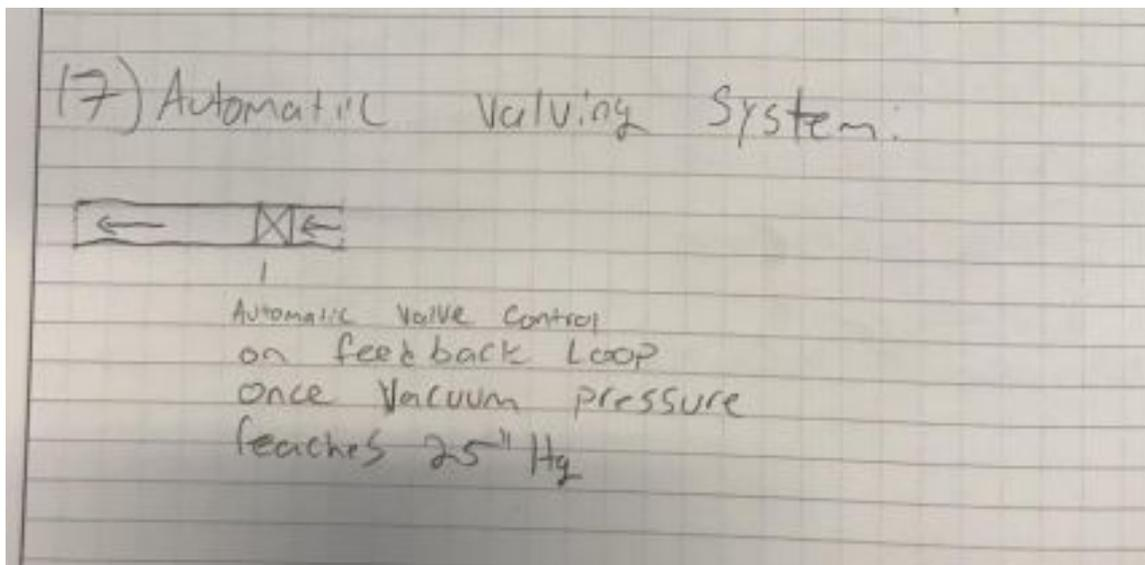 17) Automatic Valving System:
Automatic Valve Control
on feedback Loop
once Vacuum pressure
reaches 25" Hg